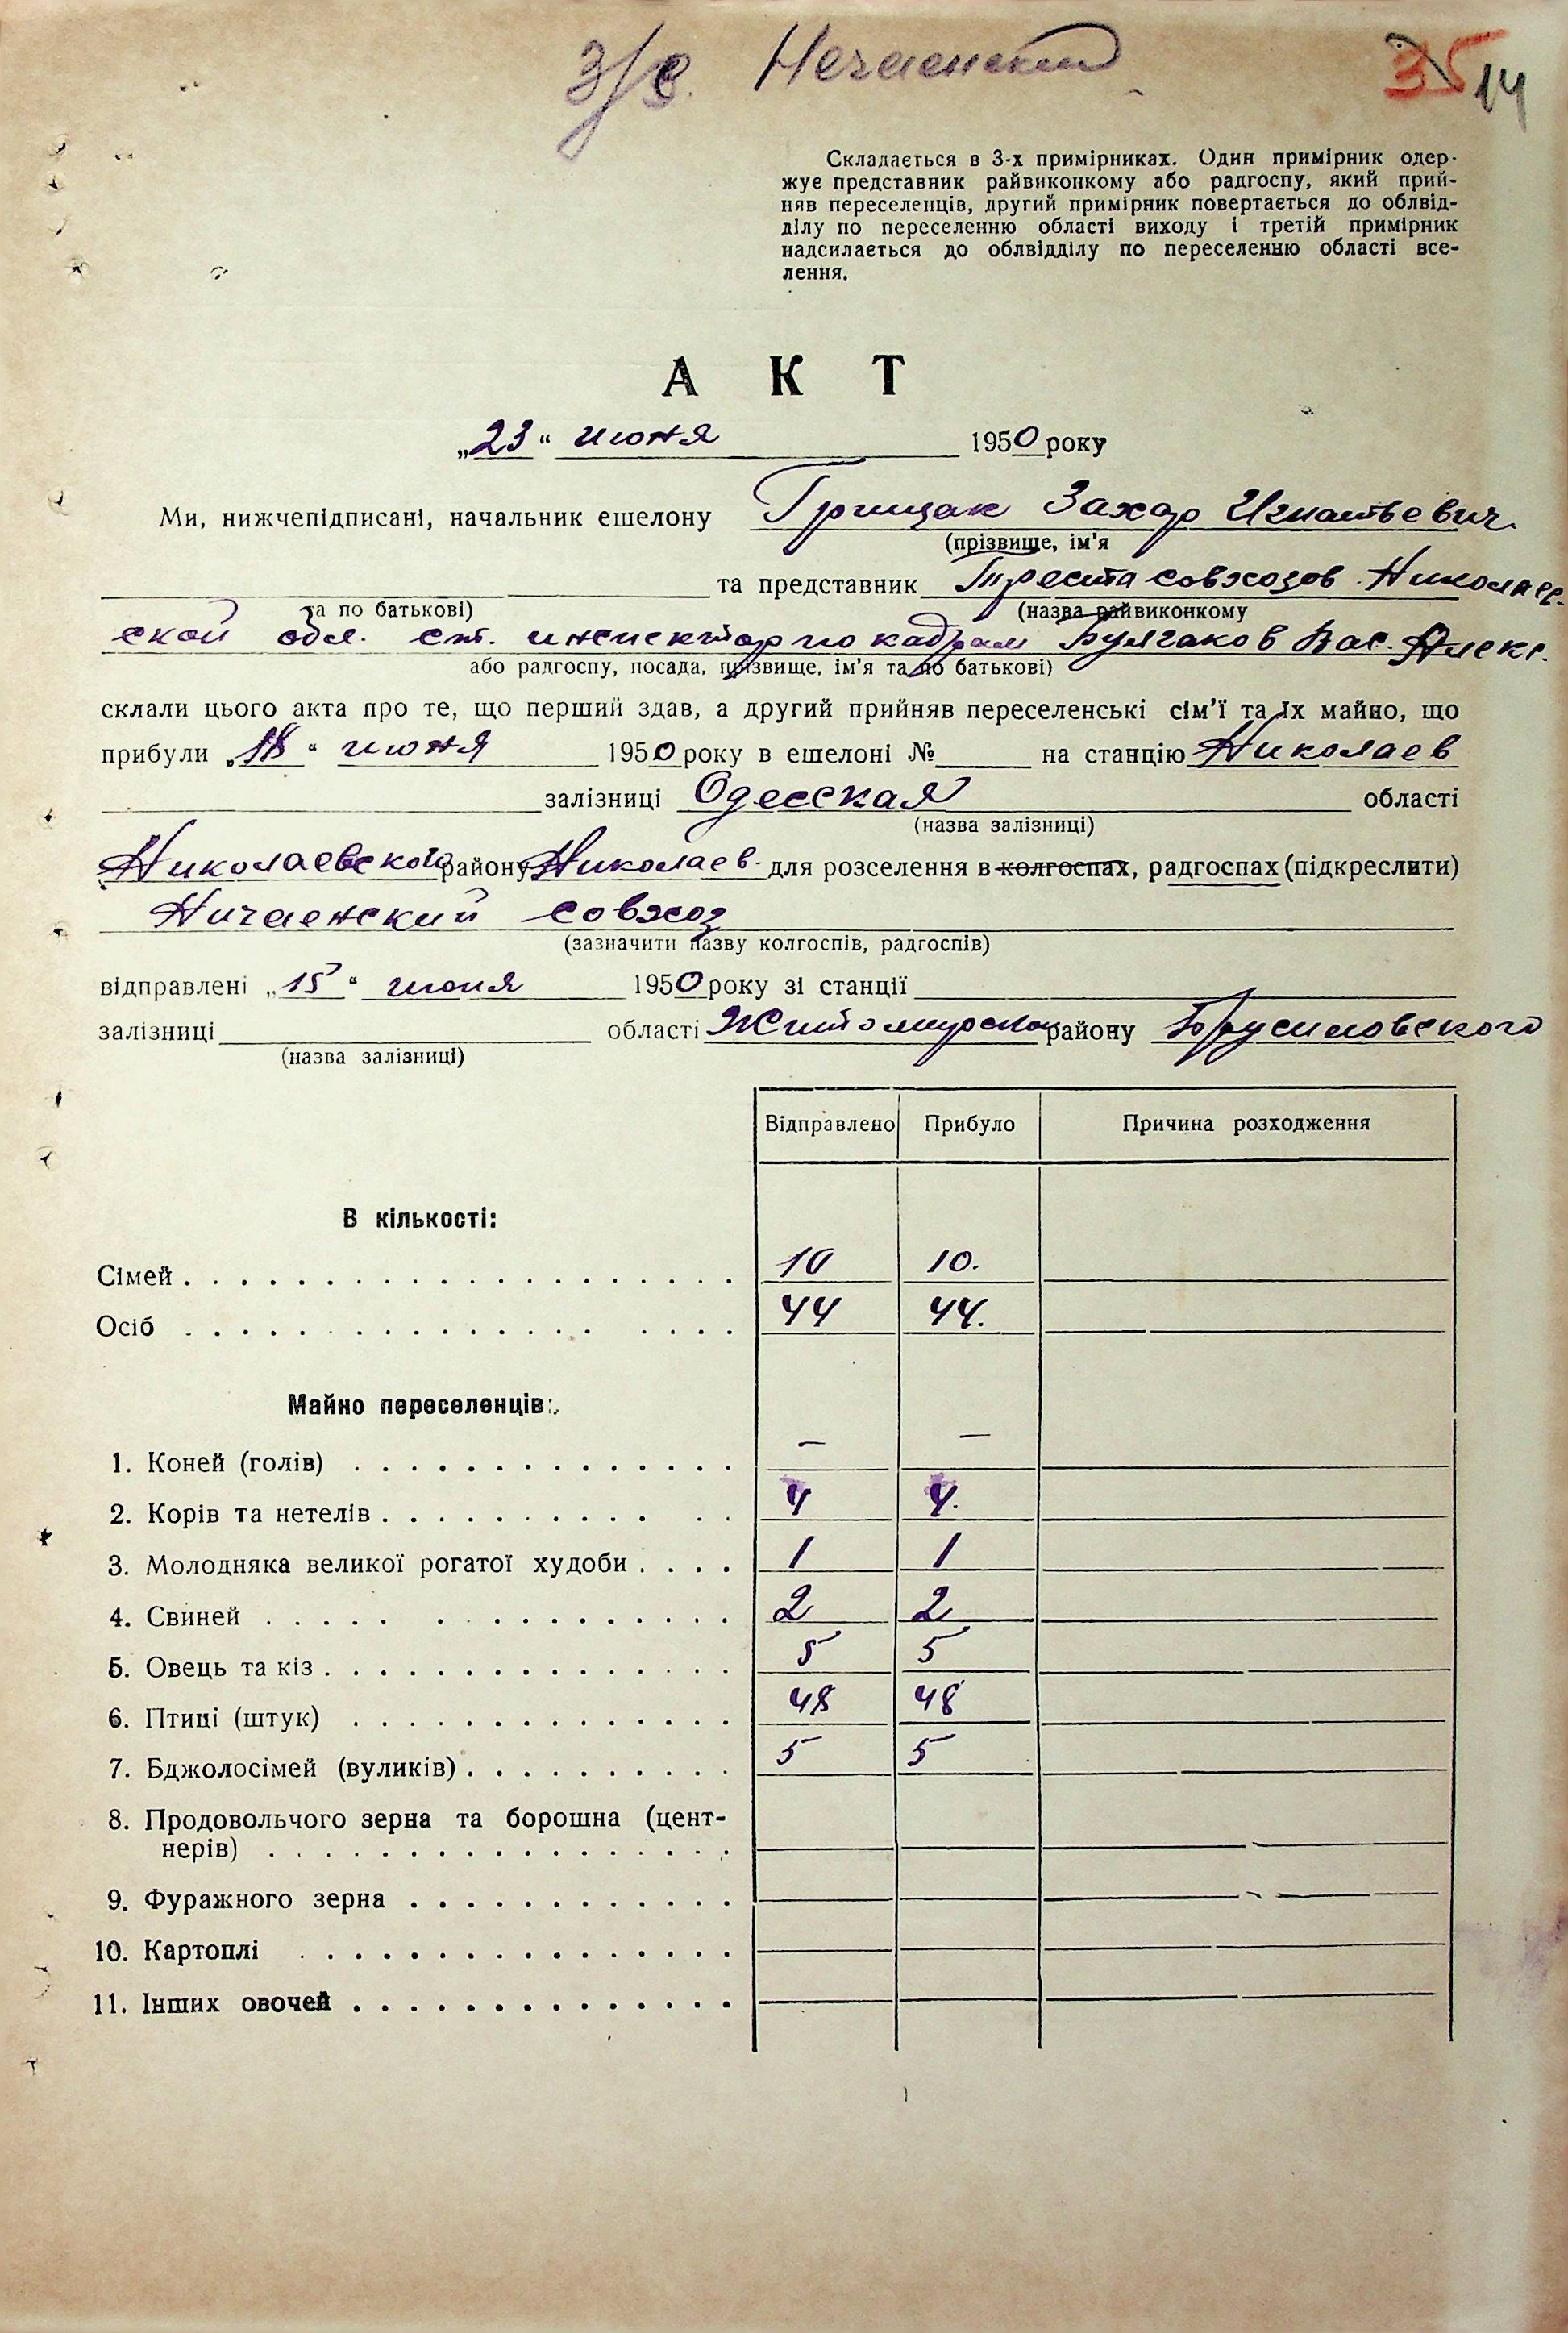 З/с. Нечаенский
35 14
Складається в 3-х примірниках. Один примірник одер-
жує представник райвиконкому або радгоспу, який прий-
няв переселенців, другий примірник повертається до облвід-
ділу по переселенню області виходу і третій примірник
надсилається до облвідділу по переселенню області все-
лення.
АКТ
„23“ июня 1950 року
Ми, нижчепідписані, начальник ешелону Грищак Захар Игнатьевич
(прізвище, ім'я
та представник Треста совхозов Николаев-
та по батькові) (назва райвиконкому
ской обл. ст. инспектор по кадрам Булгаков Вас. Алекс.
або радгоспу, посада, прізвище, ім'я та по батькові)
склали цього акта про те, що перший здав, а другий прийняв переселенські сім'ї та їх майно, що
прибули „18“ июня 1950 року в ешелоні № на станцію Николаев
залізниці Одесская області
(назва залізниці)
Николаевского району Николаев. для розселення в колгоспах, радгоспах (підкреслити)
Ничаенский совхоз
(зазначити назву колгоспів, радгоспів)
відправлені „15“ июня 1950 року зі станції
залізниці області Житомирской району Брусиловского
(назва залізниці)
Відправлено Прибуло Причина розходження
В кількості:
Сімей 10 10.
Осіб 44 44.
Майно переселенців:
1. Коней (голів) — —
2. Корів та нетелів 4 4.
3. Молодняка великої рогатої худоби 1 1
4. Свиней 2 2
5. Овець та кіз 5 5
6. Птиці (штук) 48 48
7. Бджолосімей (вуликів) 5 5
8. Продовольчого зерна та борошна (цент-
нерів)
9. Фуражного зерна
10. Картоплі
11. Інших овочей